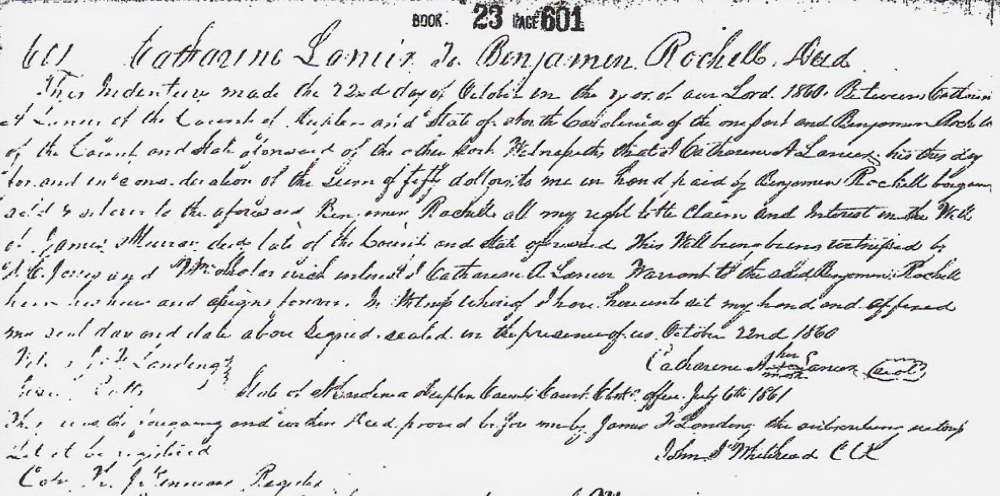 BOOK 23 PAGE 601
601 Catharine Lanier To Benjamin Rochell Deed
This Indenture made the 22nd day of October in the year of our Lord 1860 Between Catharine
A Lanier of the County of Duplin and State of North Carolina of the one part and Benjamin Rochell
of the County and State aforesaid of the other part Witnesseth that I Catharine A Lanier has this day
for and in consideration of the sum of fifty dollars to me in hand paid by Benjamin Rochell bargain
sold & to the aforesaid Benjamin Rochell all my right title Claim and Interest in the Will
of James Murray decd late of the County and State aforesaid This Will being
and which interest I Catharine A Lanier Warrant to the said Benjamin Rochell
heirs and assigns forever. In Witness whereof I have hereunto set my hand and affixed
my seal day and date above signed sealed in the presence of us October 22nd 1860
Landing Catharine A her mark Lanier (seal)
State of N Carolina Duplin County Court Clerks office July 6th 1861
This was the foregoing and within Deed proved before me by James F Landing the subscribing witness
Let it be registered John J Whitehead CCK
Register